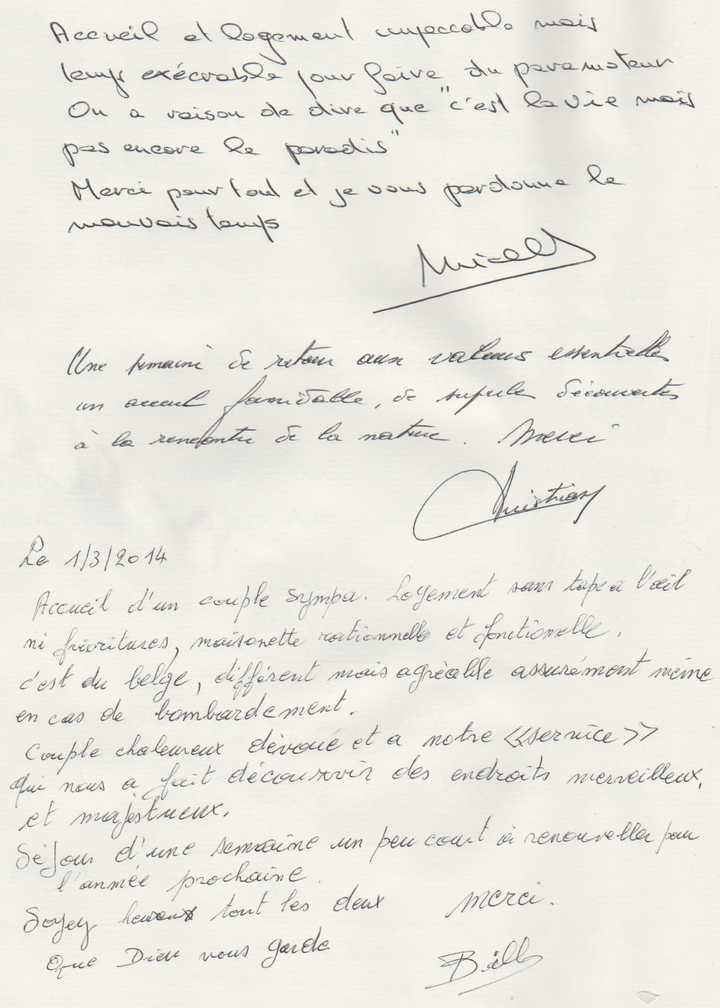 Accueil et logement impeccable mais
temps exécrable pour faire du paramoteur
On a raison de dire que "c'est la vie mais
pas encore le paradis"
Merci pour tout et je vous pardonne le
mauvais temps
Une semaine de retour aux valeurs essentielles
un accueil formidable, de superbes découvertes
à la rencontre de la nature. Merci
Christian
Le 1/3/2014
Accueil d'un couple sympa. Logement sans tape a l'œil
ni fioritures, maisonette rationnelle et fonctionelle.
c'est du belge, différent mais agréable assurément même
en cas de bombardement.
Couple chaleureux dévoué et a notre «service»
qui nous a fait découvrir des endroits merveilleux,
et majestueux.
Séjour d'une semaine un peu court à renouveller pour
l'année prochaine.
Soyez heureux tout les deux merci.
Que Dieu vous garde